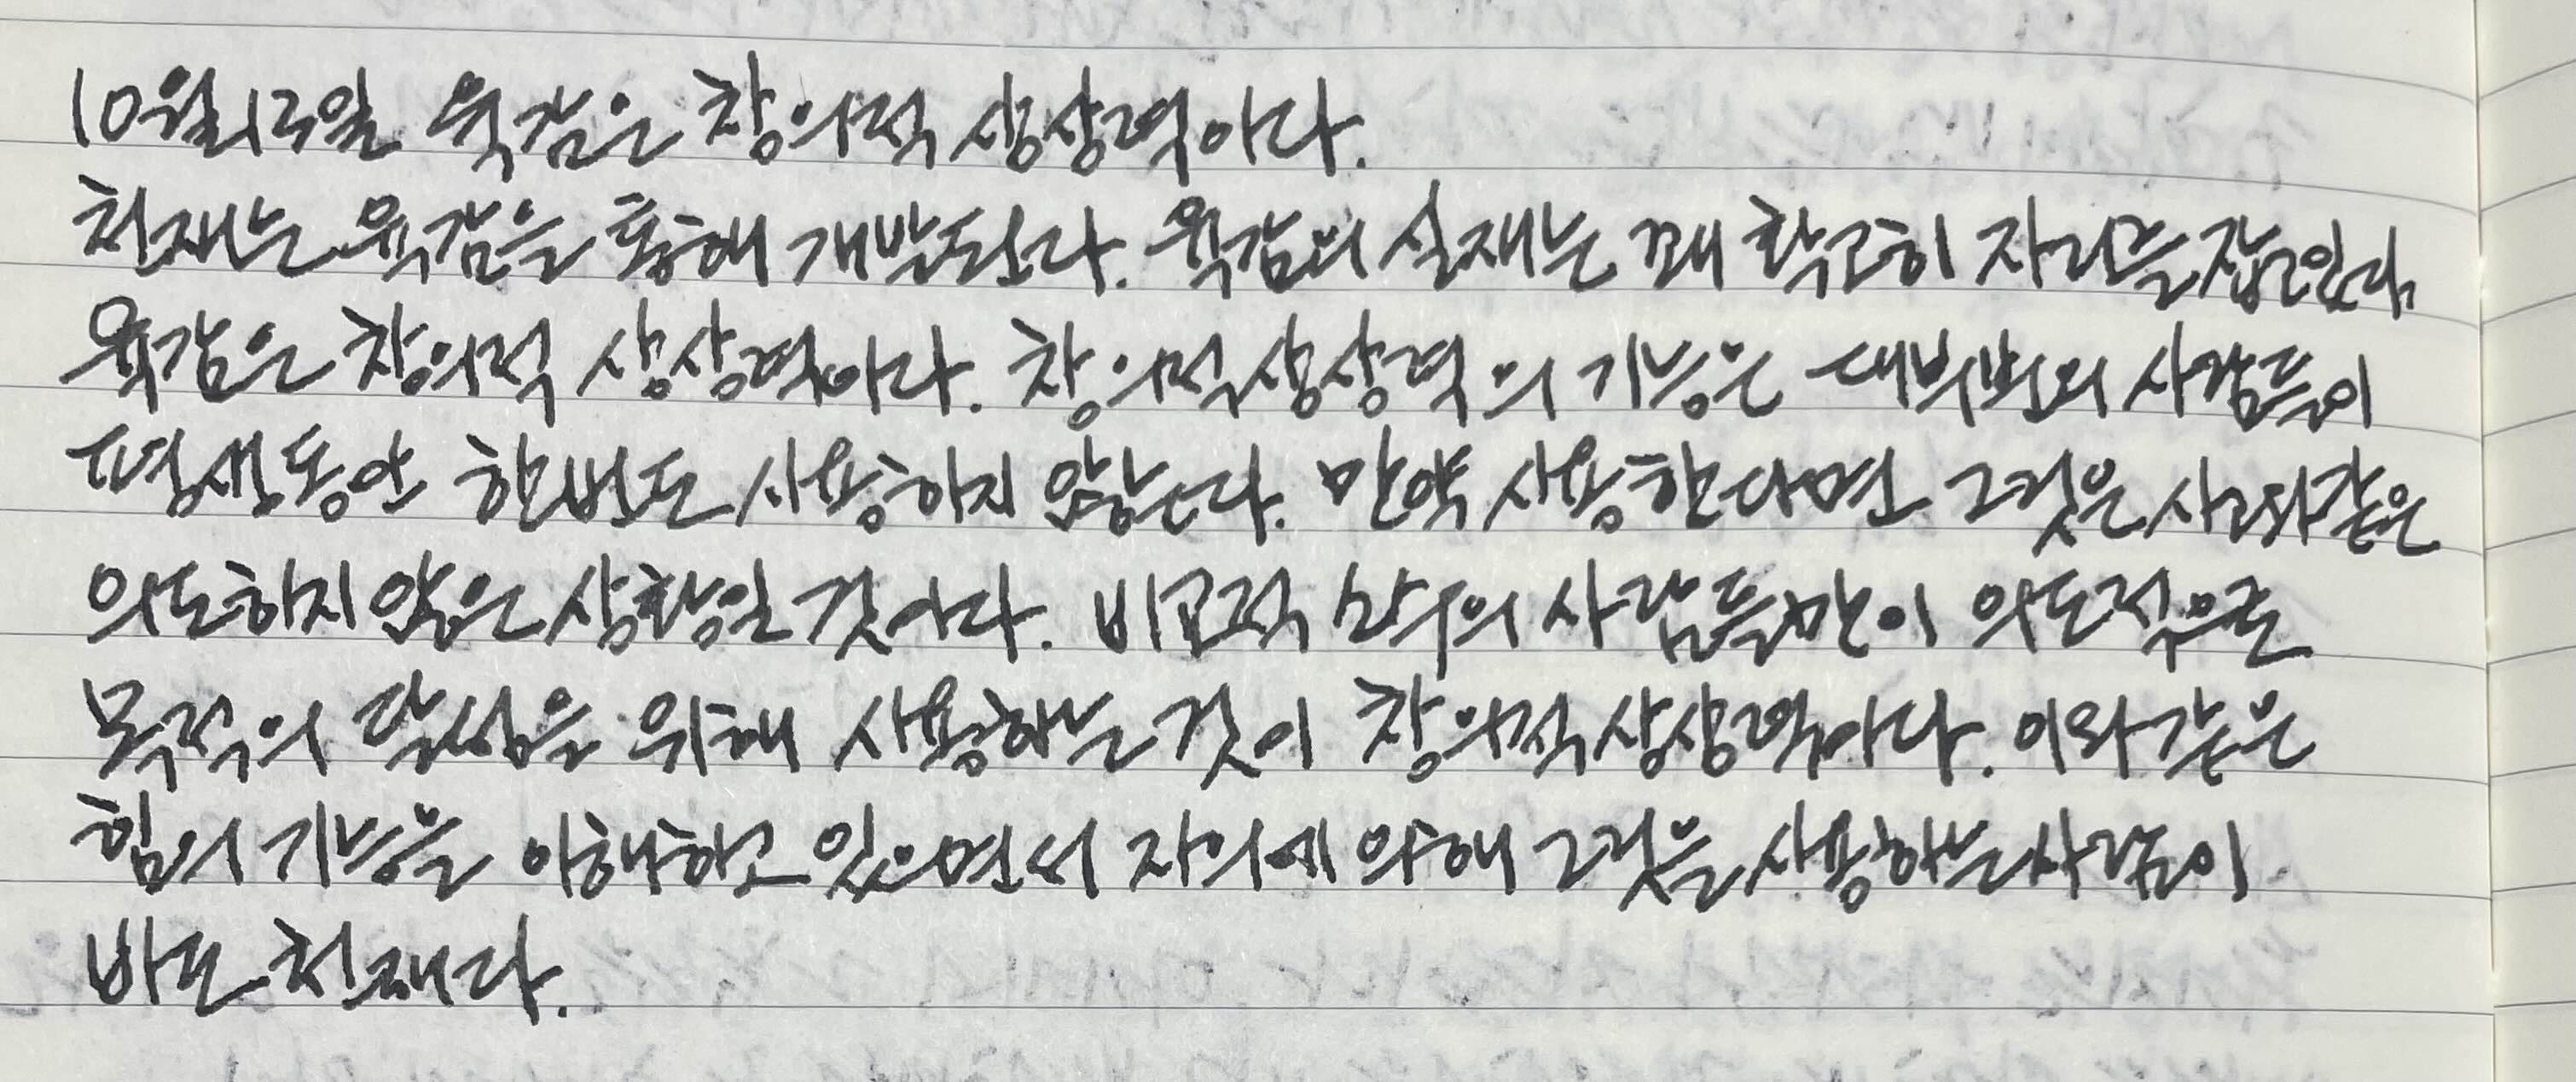 10월13일 육감은 창의적 상상력이다.
천재는 육감을 통해 개발된다. 육감의 실재는 꽤 확고히 자리를잡고있다.
육감은 창의적 상상력이다. 창의적상상력의 기능은 대부분의 사람들이
평생동안 한번도 사용하지 않는다. 만약 사용한다면 그것은 사고와같은
의도하지 않은 상황일 것이다. 비교적 소수의 사람들만이 의도적으로
목적의 달성을 위해 사용하는 것이 창의적상상력이다. 이와 같은
힘의 기능을 이해하고 있으면서 자의에 의해 그것을 사용하는 사람이
바로 천재다.